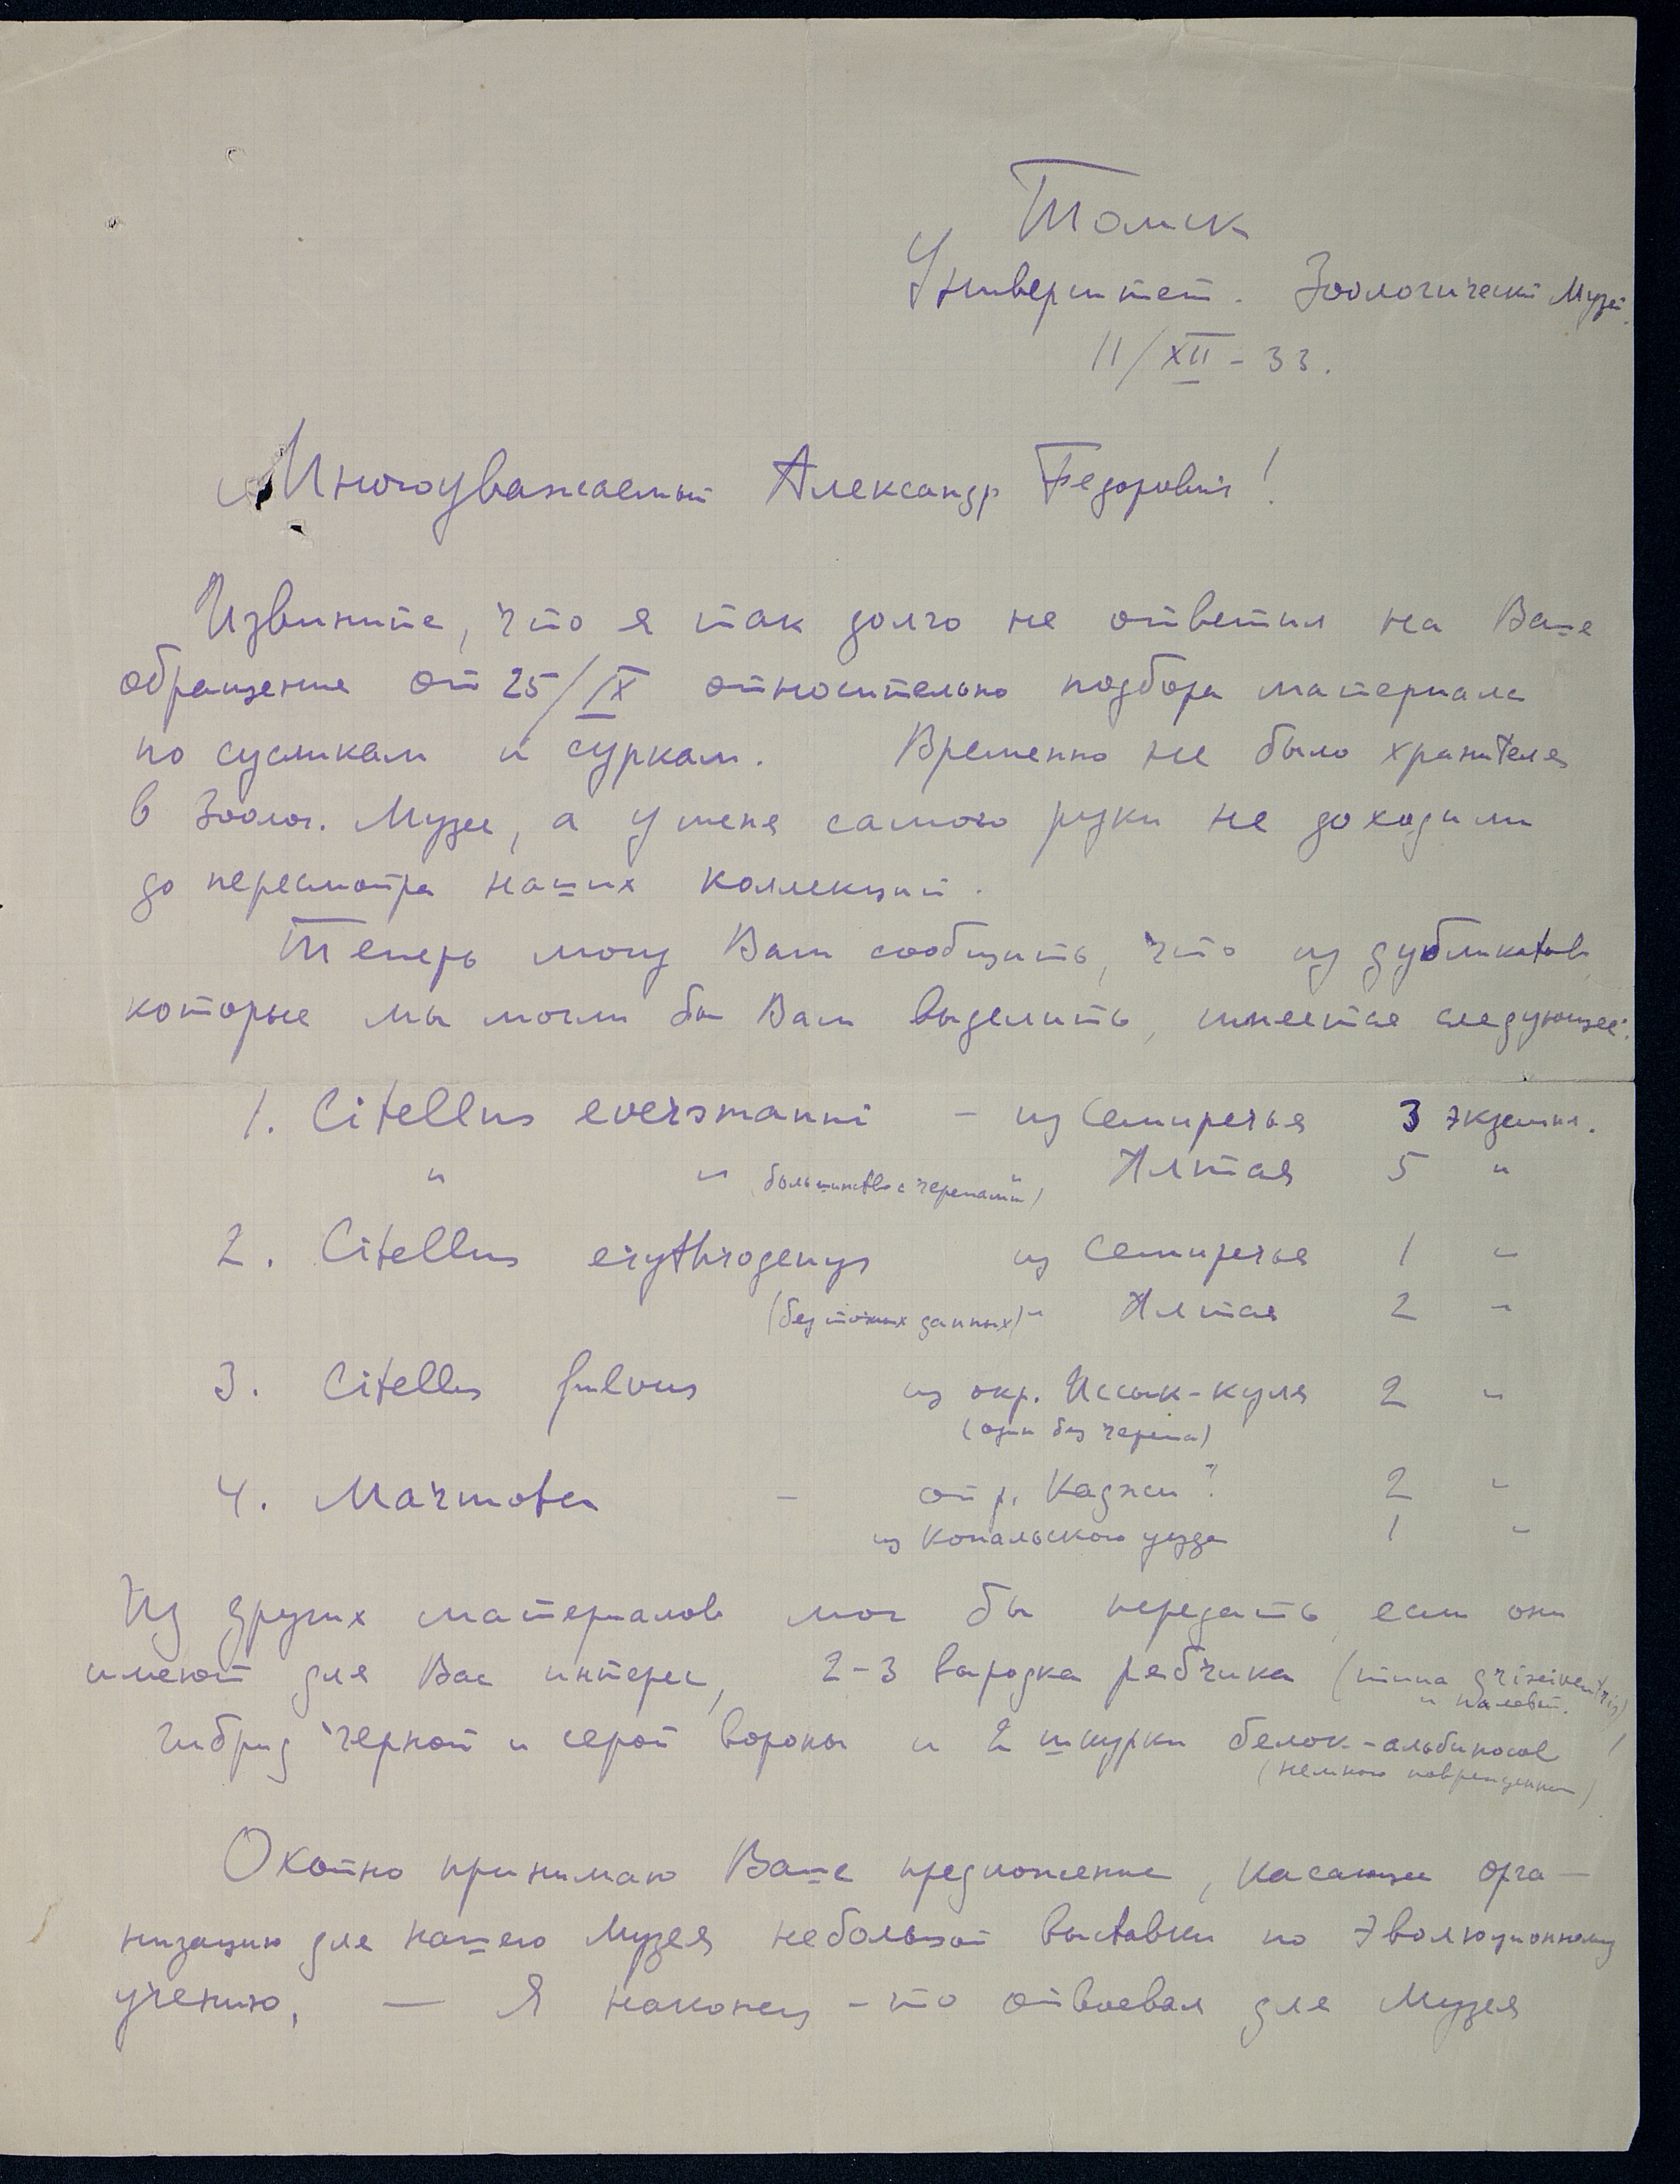 Томск
Университет. Зоологический Музей.
11/XII - 33.
Многоуважаемый Александр Федорович!
Извините, что я так долго не ответил на Ваше
обращение от 25/IX относительно подбора материала
по сусликам и суркам. Временно не было хранителя
в Зоолог. Музее, а у меня самого руки не доходили
до пересмотра наших коллекций.
Теперь могу Вам сообщить, что из дубликатов,
которые мы могли бы Вам выделить, имеется следующее:
1. Citellus eversmanni – из Семиречья 3 экземпл.
" " (большинство с черепами) " Алтая 5 "
2. Citellus erythrogenys из Семиречья 1 "
(без точных данных) " Алтая 2 "
3. Citellus fulvus из окр. Иссык-куля 2 "
(один без черепа)
4. Marmota – от р. Каджи? 2 "
из Копальского уезда 1 "
Из других материалов мог бы передать, если они
имеют для Вас интерес, 2-3 выродка рябчика (типа griseiventris)
и палевый.
гибрид черной и серой вороны и 2 шкурки белок-альбиносов!
(немного поврежденных)
Охотно принимаю Ваше предложение, касающее орга-
низацию для нашего Музея небольшой выставки по эволюционному
учению, — Я наконец-то отвоевал для Музея